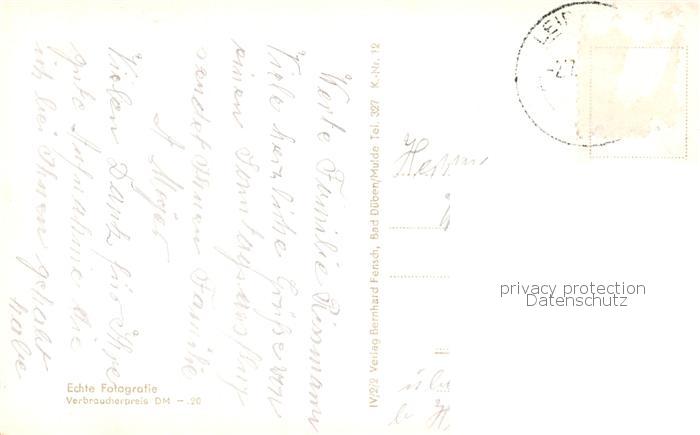 Werte Familie Rissmann
Viele herzliche Grüße von
einen Sonntagsausflug
sendet Ihnen Familie
A. Meyer
Vielen Dank für Ihre
gute Aufnahme die
ich bei Ihnen gehabt
habe
Echte Fotografie
Verbraucherpreis DM -.20
IV/2/2 Verlag Bernhard Fensch, Bad Düben/Mulde Tel. 327 K-Nr. 12
LEIP
-2.
privacy protection
Datenschutz